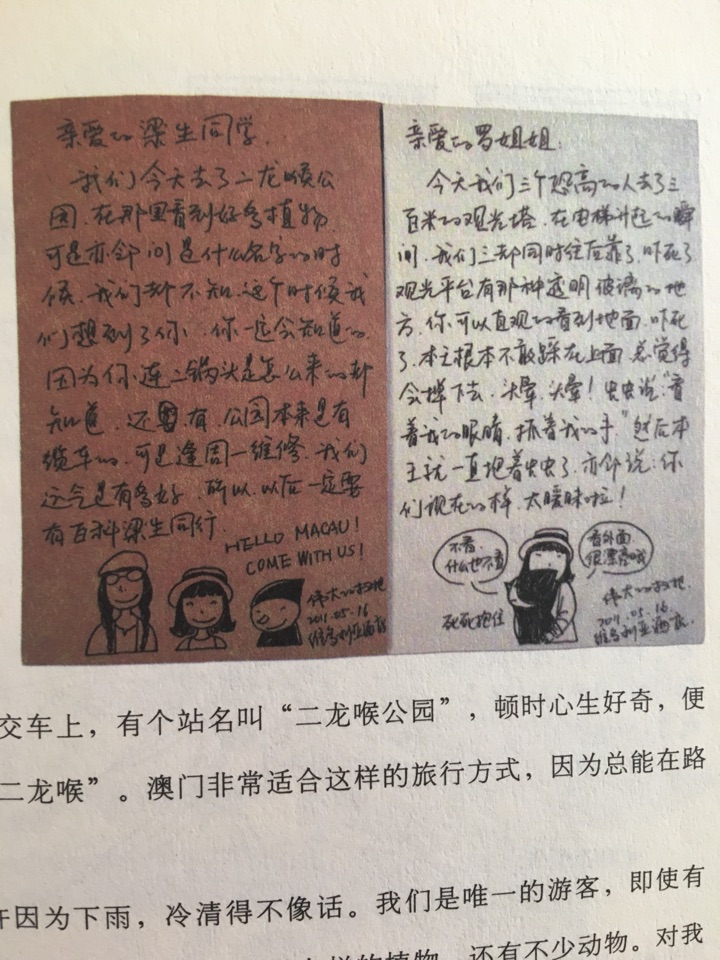 亲爱的梁生同学.
我们今天去了二龙喉公
园.在那里看到好多植物.
可是亦邻问是什么名字的时
候.我们却不知.这个时候我
们想到了你.你一定会知道的.
因为你连二锅头是怎么来的都
知道.还有.公园本来是有
缆车的.可是逢周一维修.我们
运气是有多好.所以.以后一定要
有百科梁生同行.
HELLO MACAU!
COME WITH US!
伟大的
2011.05.16
维多利亚酒店
亲爱的罗姐姐:
今天我们三个恐高的人去了三
百米的观光塔.在电梯升起的瞬
间.我们三却同时往后靠了.吓死了
观光平台有那种透明玻璃的地
方.你可以直观的看到地面.吓死
了.本主根本不敢踩在上面.总觉得
会掉下去.头晕.头晕!虫虫说:"看
着我的眼睛.抓着我的手."然后本
主就一直抱着虫虫了.亦邻说:你
们现在的样.太暧昧啦!
不看.
什么也不看
看外面
很漂亮哦
死死抱住
伟大的
2011.05.16
维多利亚酒店.
交车上，有个站名叫“二龙喉公园”，顿时心生好奇，便
二龙喉”。澳门非常适合这样的旅行方式，因为总能在路
许因为下雨，冷清得不像话。我们是唯一的游客，即使有
样的植物，还有不少动物。对我